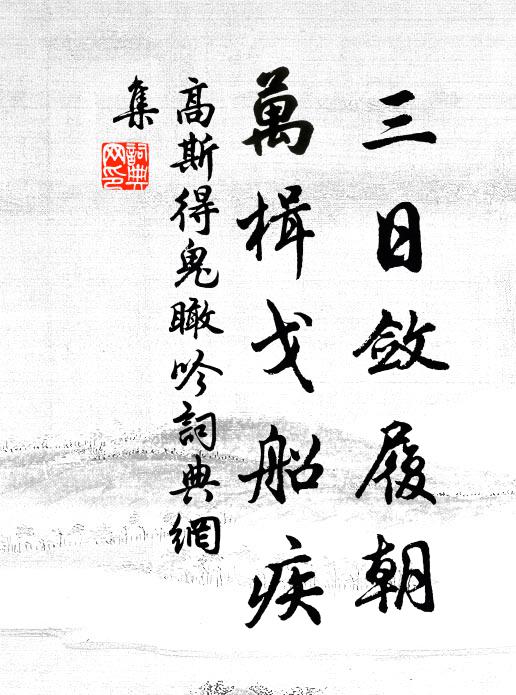 三日斂履朝
萬楫戈船疾
高斯得鬼瞰吟詞典網
集
詞典
网印